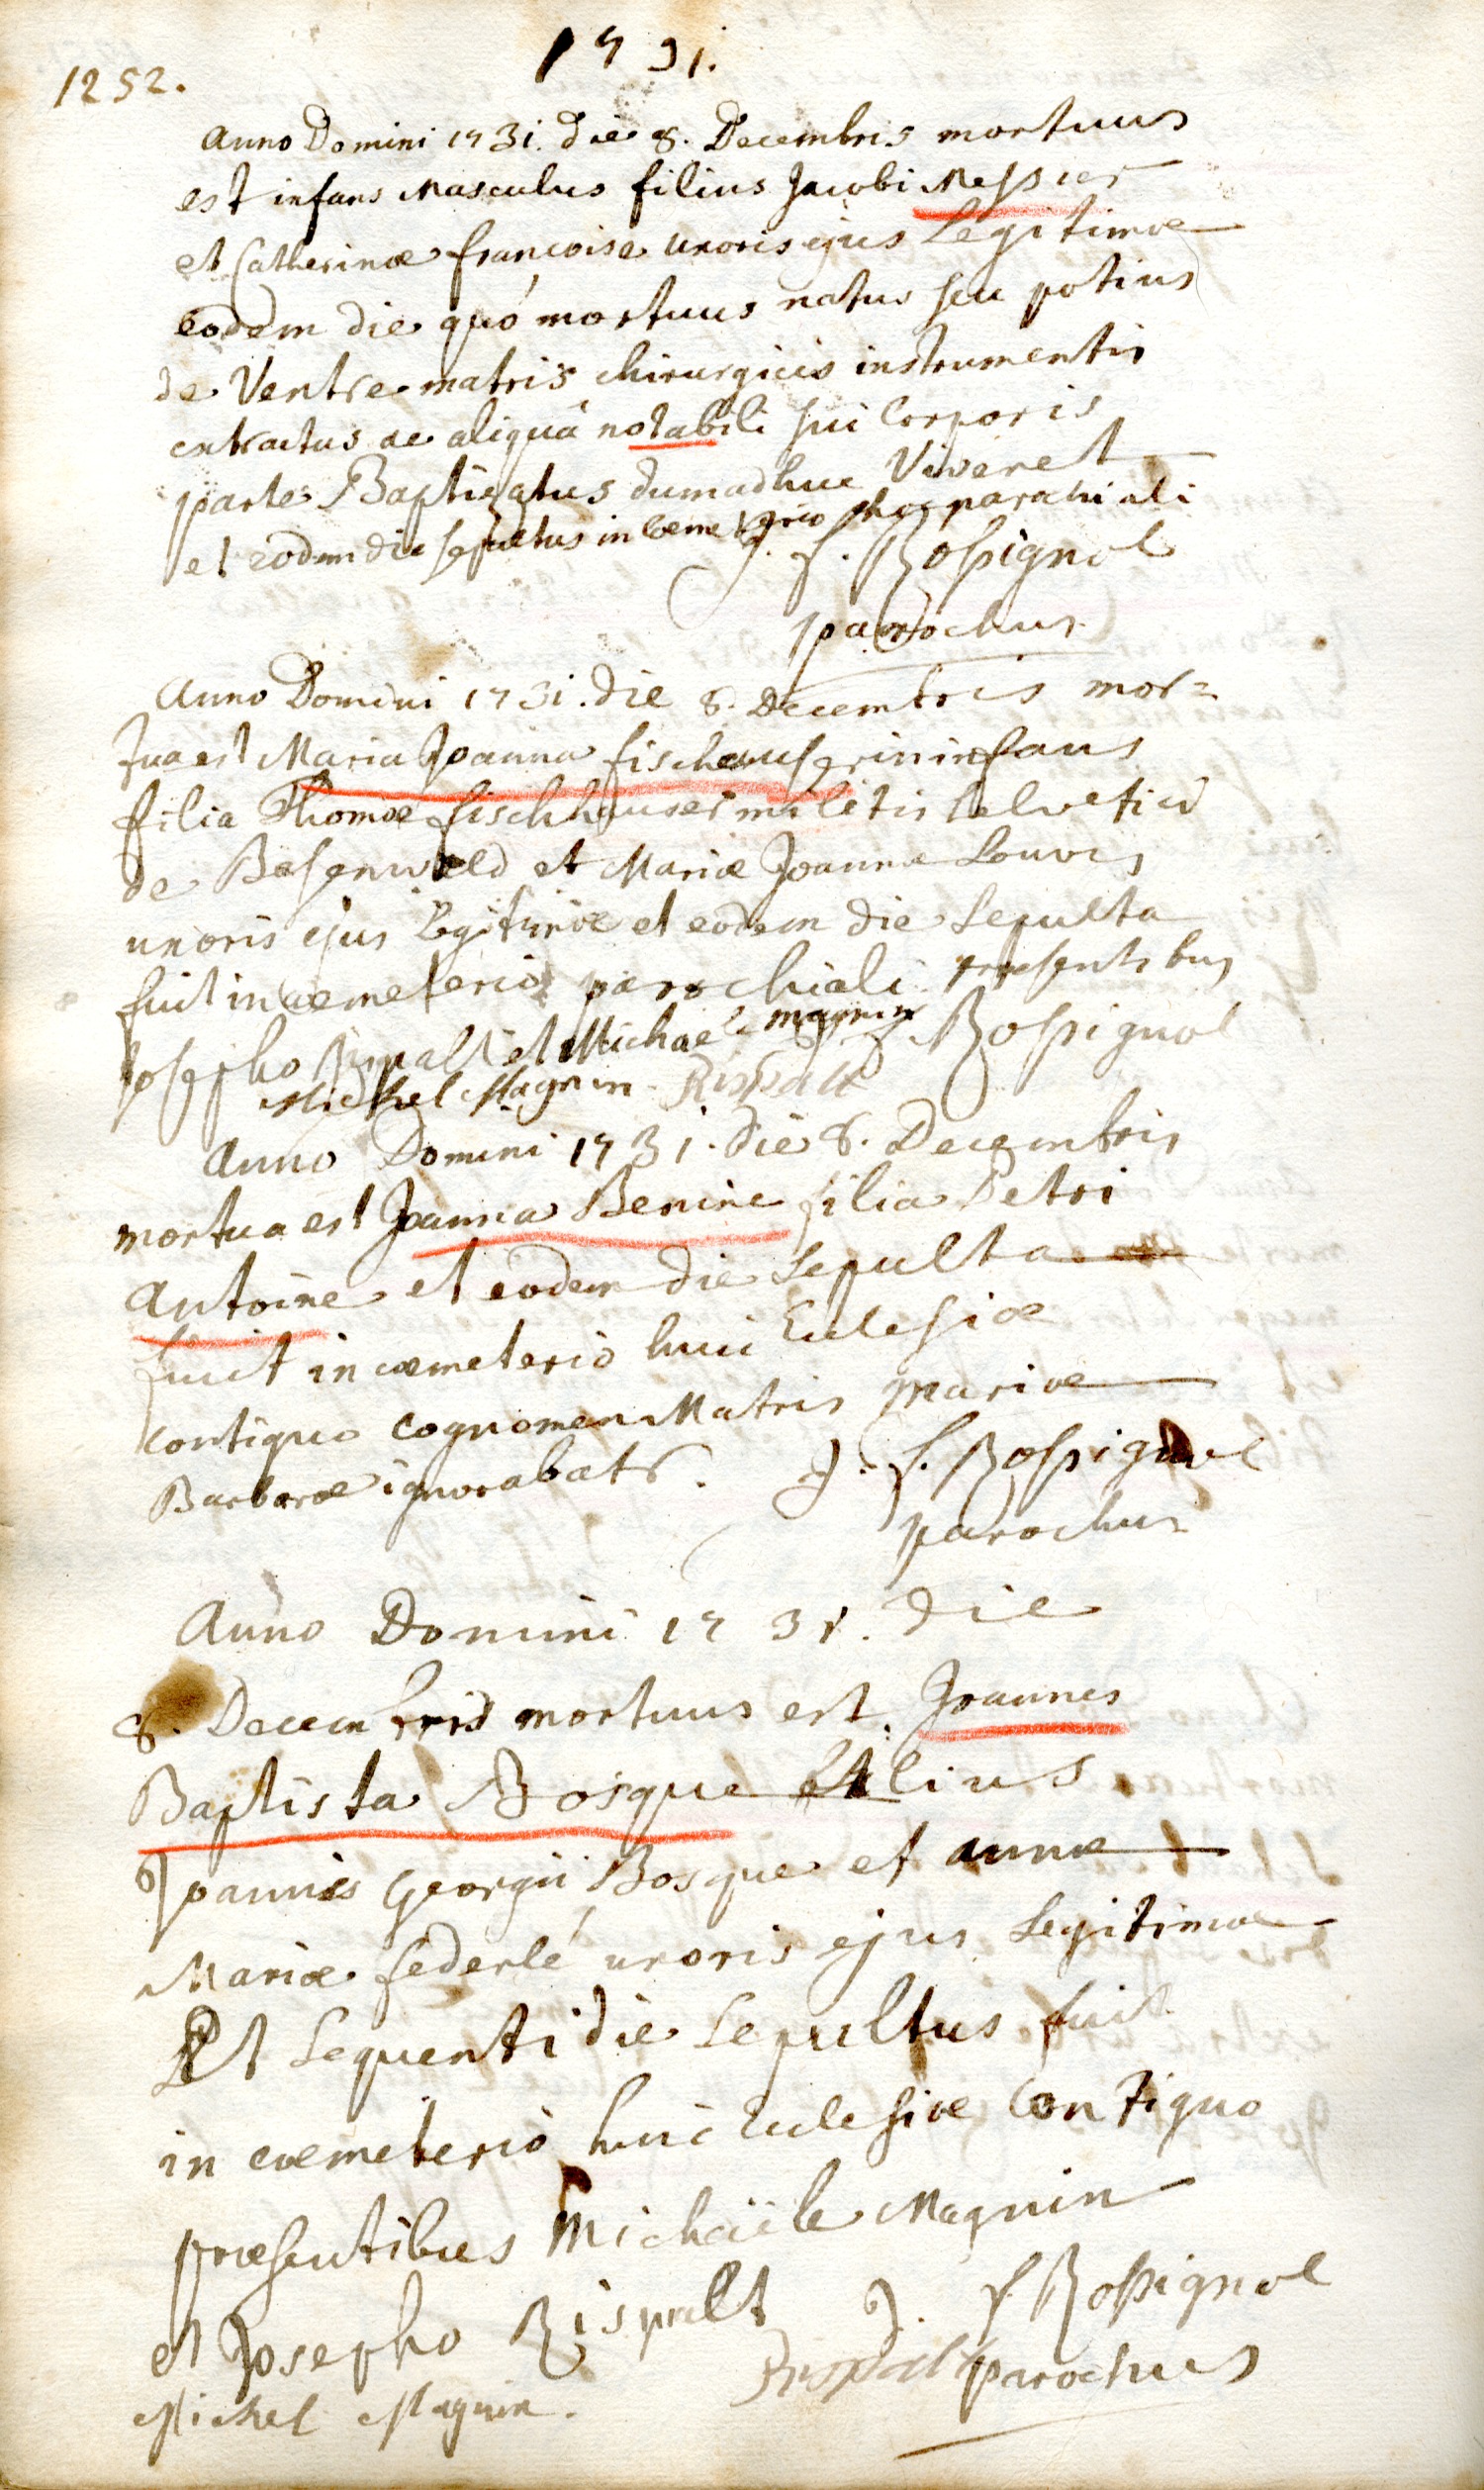 1731.
1252.
Anno Domini 1731. die 8. Decembris mortuus
est infans Masculus filius Jacobi Messier
et Catherinæ francoise uxoris ejus Legitimæ
eodem die quo mortuus natus seu potius
de Ventre matris chirurgicis instrumentis
extractus ac aliquâ notabili sui Corporis
parte Baptizatus dum adhuc Viveret
et eodem die sepultus in Cœmeterio hoc parochiali
J. f. Rossignol
parochus
Anno Domini 1731. die 8. Decembris mor=
tua est Maria Joanna fischhauserin infans
filia Thomæ fischhauser militis helvetici
de Besenwald et Mariæ Joannæ Louvis
uxoris ejus Legitimæ et eodem die Sepulta
fuit in cœmeterio parochiali præsentibus
Josepho Rispalt et Michaele magnin J. f. Rossignol
Michel Magnin Rispalt
Anno Domini 1731. die 8. Decembris
mortua est Joanna Benine filia Petri
Antoine et eodem die Sepulta
fuit in cœmeterio huic Ecclesiæ
Contiguo cognomen Matris Mariæ
Barbaræ ignorabatr. J. f. Rossignol
parochus
Anno Domini 1731. die
8. Decembris mortuus est Joannes
Baptista Bosque filius
Joannis Georgii Bosque et annæ
Mariæ federlé uxoris ejus Legitimæ
Et Sequenti die Sepultus fuit
in cœmeterio huic Ecclesiæ Contiguo
præsentibus Michaële Magnin
et Josepho Rispalt J. f. Rossignol
Rispalt parochus
Michel Magnin.